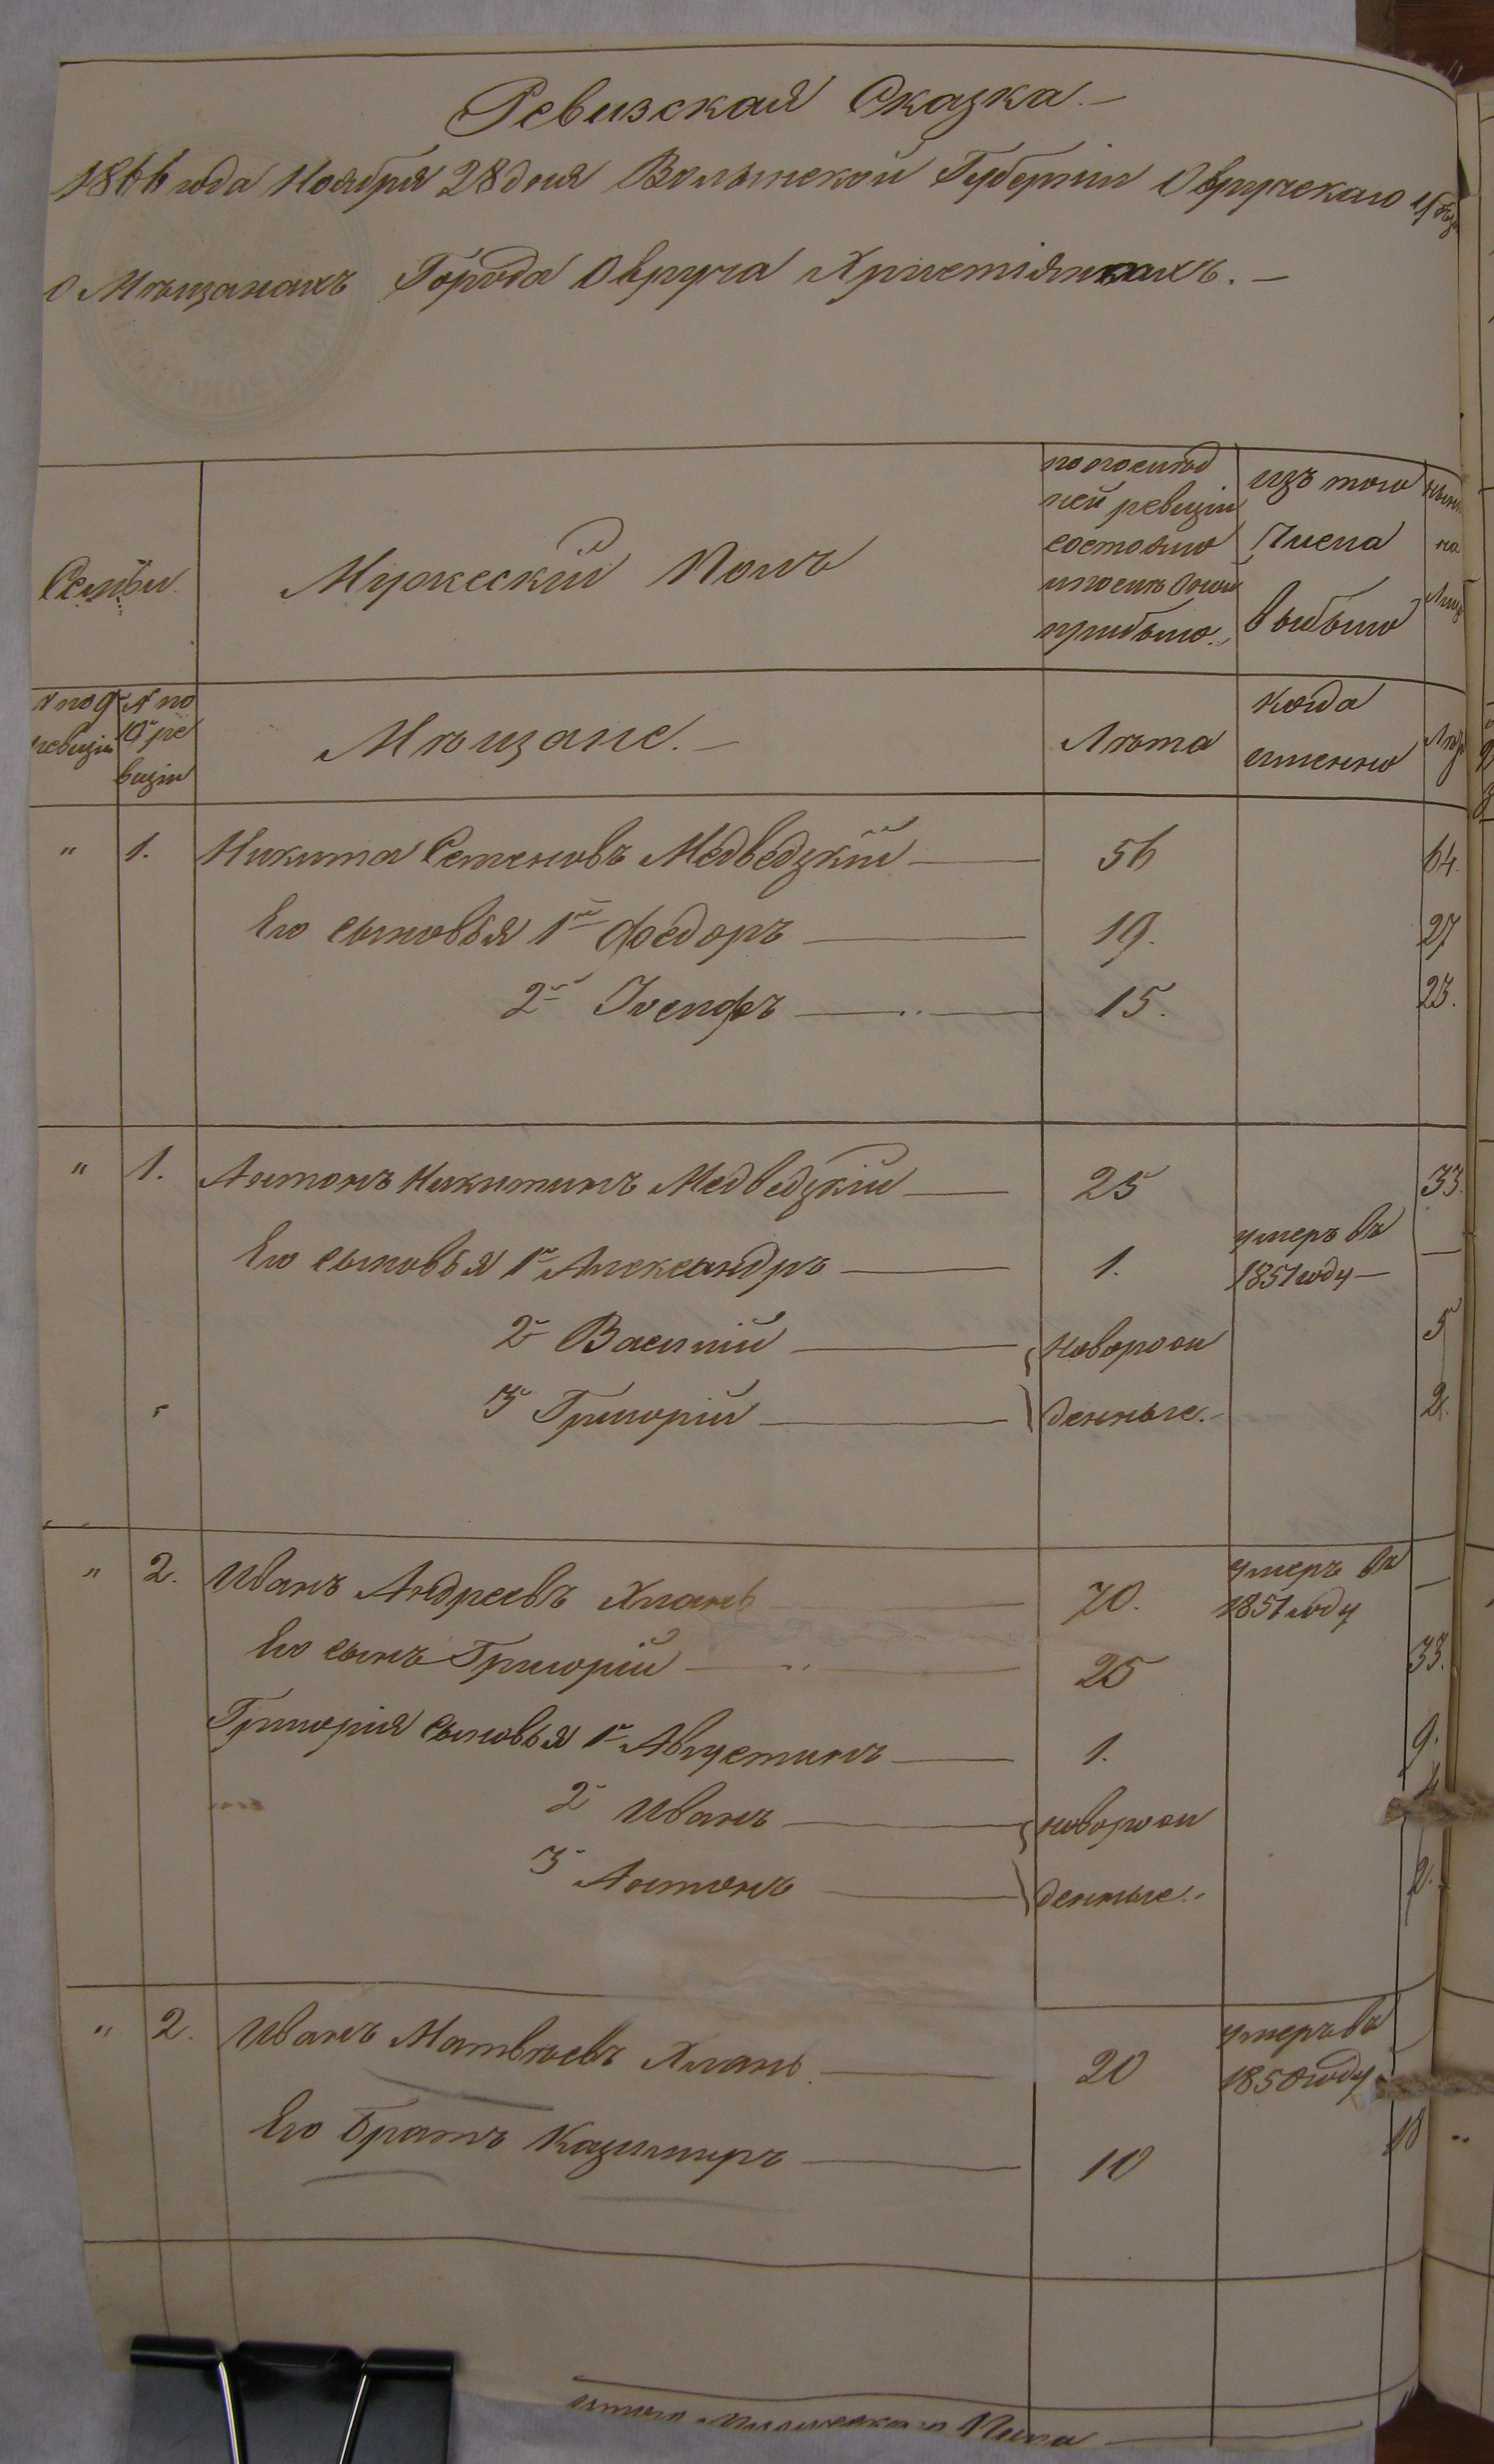 Ревизская Сказка.—
1866 года Ноября 28 дня Волынской Губерніи Овручскаго уѣзда
О Мѣщанахъ Города Овруча Христіянахъ.—
Семьи.
Мужескій Полъ
по послѣд
ней ревизіи
состояло
и послѣ оной
прибыло.
изъ того
числа
выбыло
нынѣ
на
лицо
№ по 9й
ревизіи
№ по
10й ре
визіи
Мѣщане.—
Лѣта
когда
именно
Лѣта
" 1. Никита Семеновъ Медведзкій — 56 64.
Его сыновья 1й Федоръ — 19. 27
2й Іосифъ — " — 15. 23.
" 1. Антонъ Никитинъ Медведзкій — 25 33.
Его сыновья 1й Александръ — 1. умеръ въ 1851 году — —
2й Василій — новорож 5
3й Григорій — денные.- 2.
" 2. Иванъ Андреевъ Хлань — 70. умеръ въ 1851 году —
Его сынъ Григорій — " — 25 33.
Григорія сыновья 1й Августинъ — 1. 9.
2й Иванъ — новорож
3й Антонъ — денные.- 2.
" 2. Иванъ Матвѣевъ Хлань. — 20 умеръ въ 1850 году
Его братъ Казимиръ — 10 18 "
итого Мужескаго Пола —